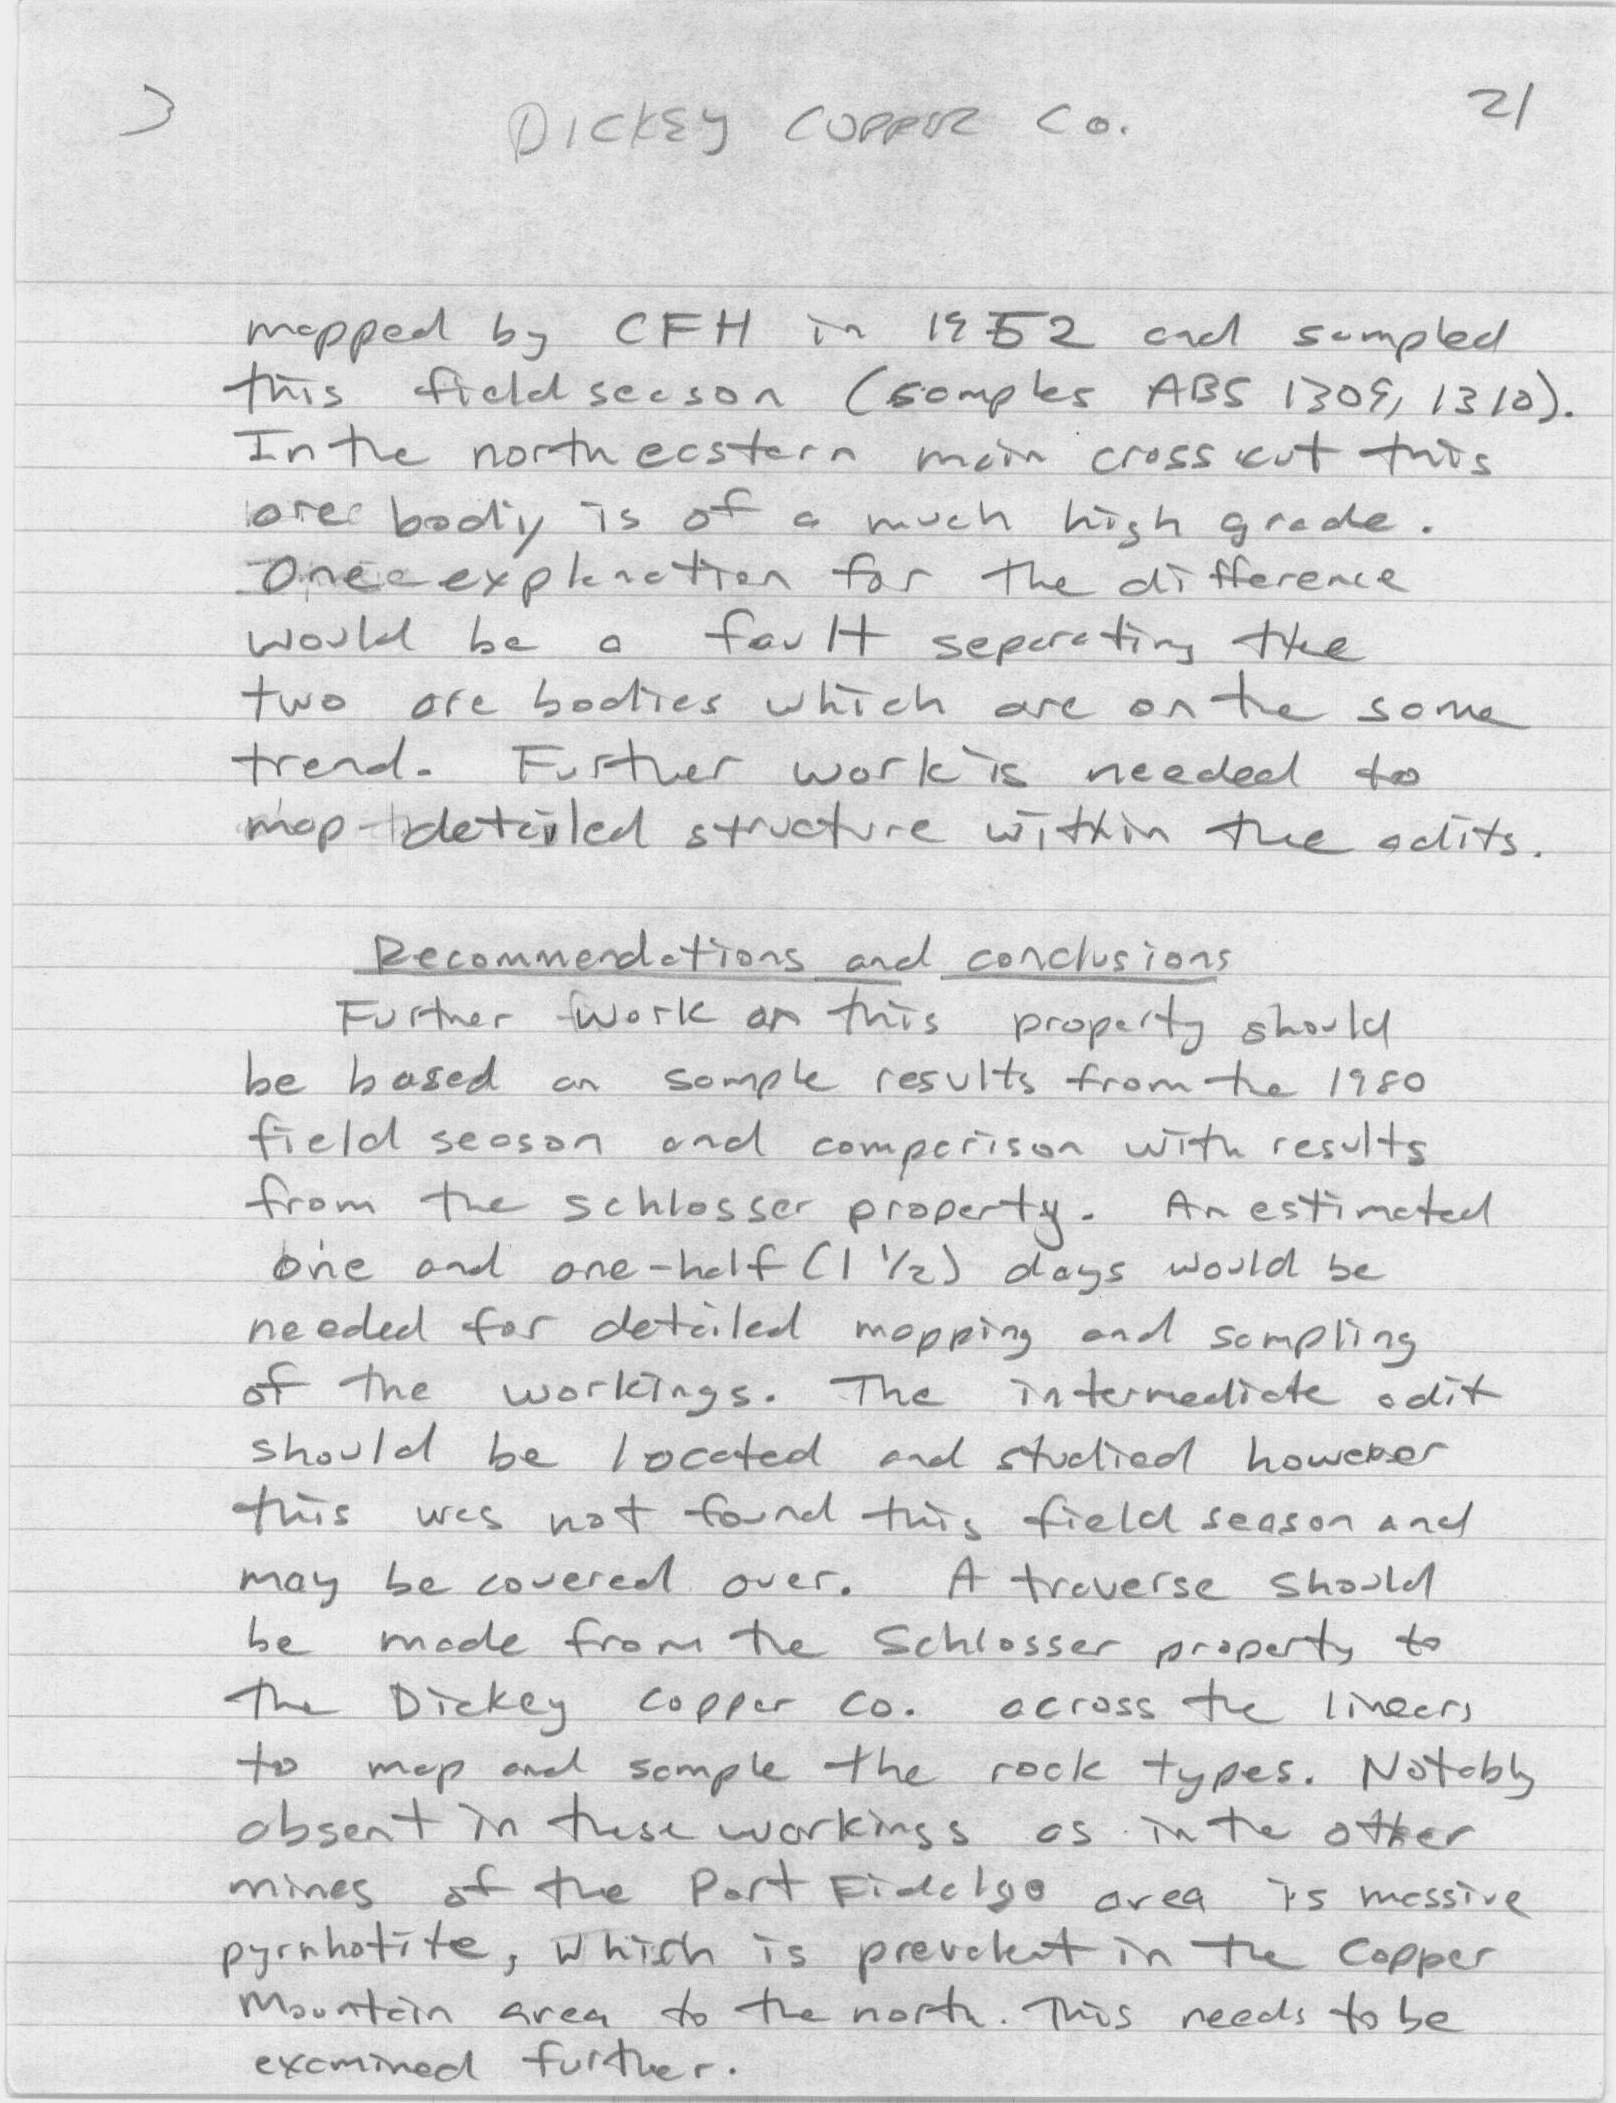 3 Dickey Copper Co. 21
mapped by CFH in 1952 and sampled
this field season (samples ABS 1309, 1310).
In the northeastern main crosscut this
ore body is of a much high grade.
One explanation for the difference
would be a fault separating the
two ore bodies which are on the same
trend. Further work is needed to
map detailed structure within the adits.
Recommendations and conclusions
Further work on this property should
be based on sample results from the 1980
field season and comparison with results
from the Schlosser property. An estimated
one and one-half (1 1/2) days would be
needed for detailed mapping and sampling
of the workings. The intermediate adit
should be located and studied however
this was not found this field season and
may be covered over. A traverse should
be made from the Schlosser property to
the Dickey Copper Co. across the linears
to map and sample the rock types. Notably
absent in these workings as in the other
mines of the Port Fidalgo area is massive
pyrrhotite, which is prevalent in the Copper
Mountain area to the north. This needs to be
examined further.